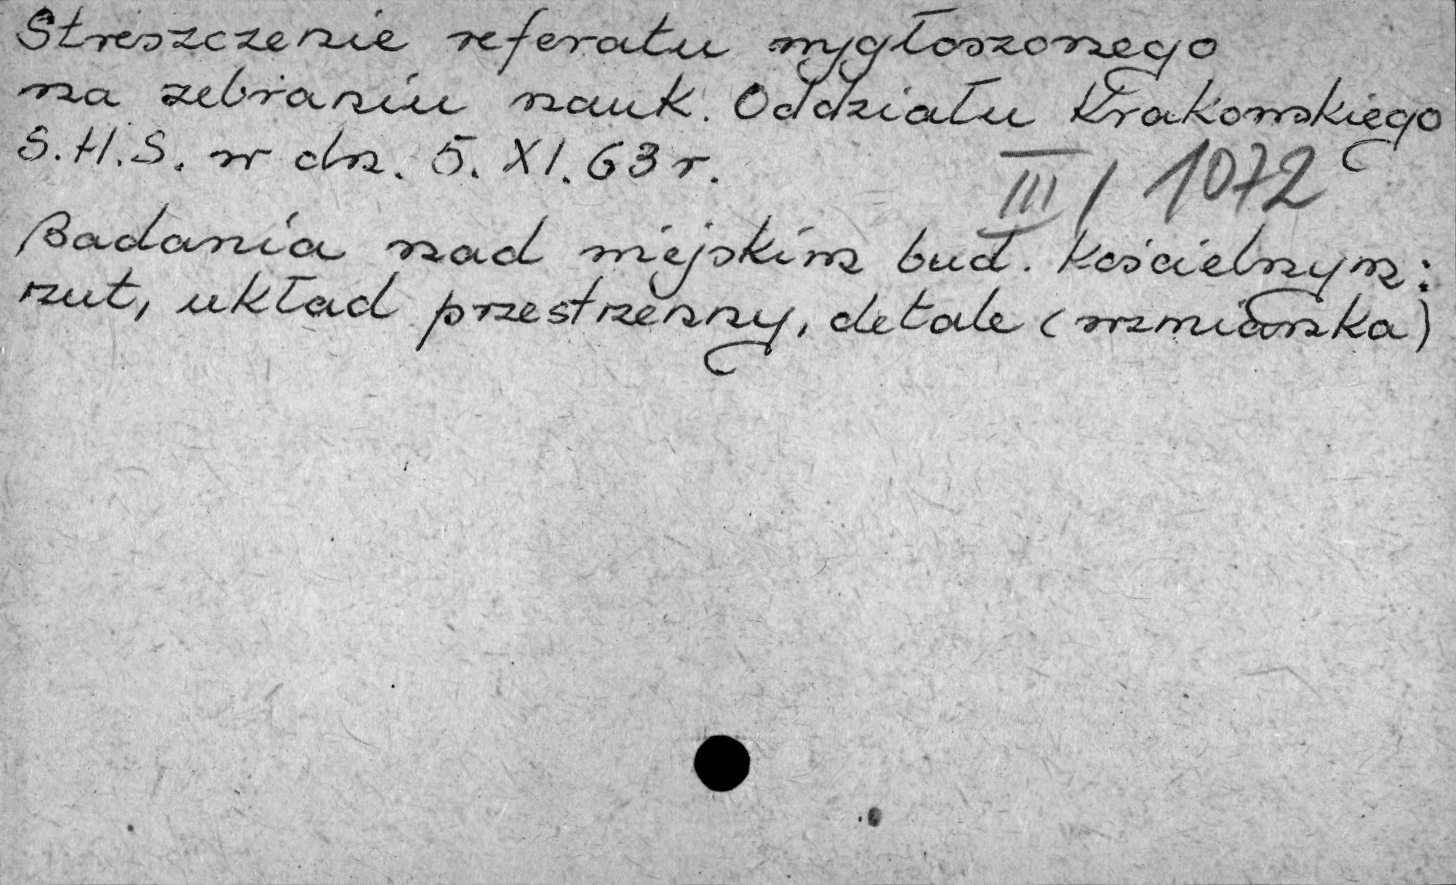 Streszczenie referatu wygłoszonego
na zebraniu nauk. Oddziału Krakowskiego
S.H.S. w dn. 5. XI. 63 r.
III / 1072
Badania nad miejskim bud. kościelnym:
rzut, układ przestrzenny, detale (wzmianka)